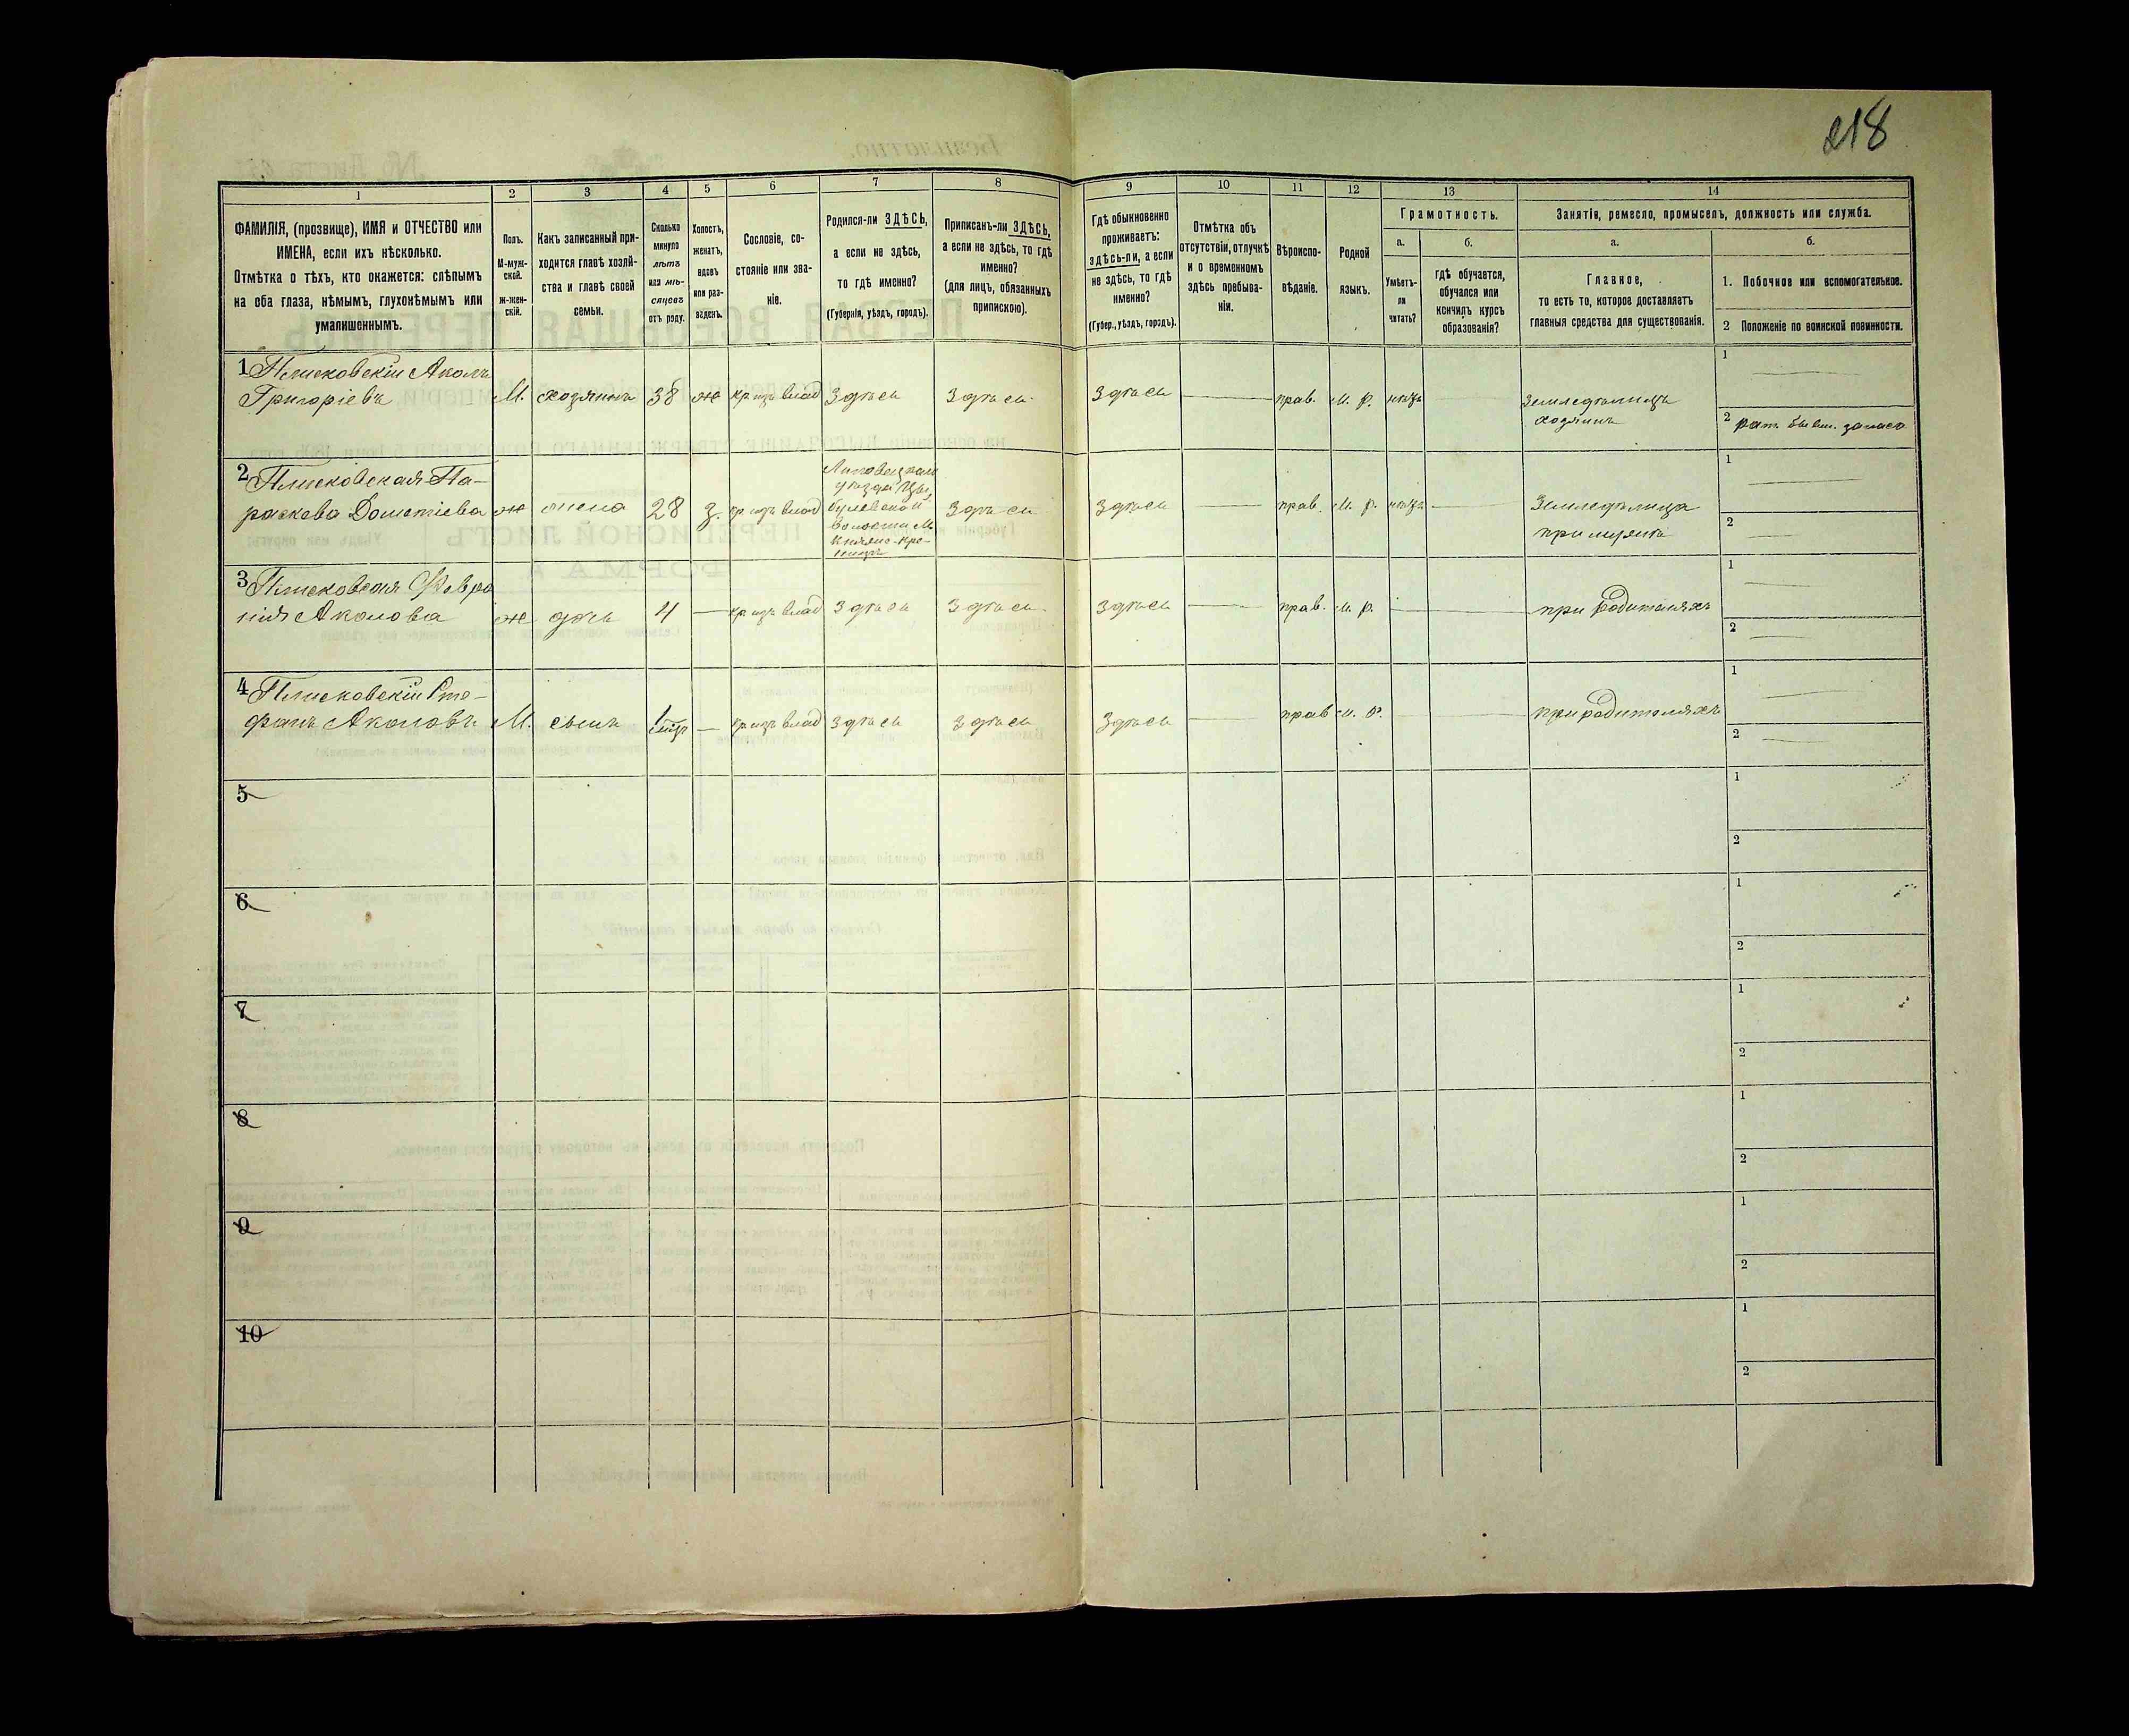 218
1 2 3 4 5 6 7 8 9 10 11 12 13 14
ФАМИЛІЯ, (прозвище), ИМЯ и ОТЧЕСТВО или
ИМЕНА, если ихъ нѣсколько.
Отмѣтка о тѣхъ, кто окажется: слѣпымъ
на оба глаза, нѣмымъ, глухонѣмымъ или
умалишеннымъ.
Полъ.
М-муж-
ской.
ж-жен-
скій.
Какъ записанный при-
ходится главѣ хозяй-
ства и главѣ своей
семьи.
Сколько
минуло
лѣтъ
или мѣ-
сяцевъ
отъ роду.
Холостъ,
женатъ,
вдовъ
или раз-
веденъ.
Сословіе, со-
стояніе или зва-
ніе.
Родился-ли ЗДѢСЬ,
а если не здѣсь,
то гдѣ именно?
(Губернія, уѣздъ, городъ).
Приписанъ-ли ЗДѢСЬ,
а если не здѣсь, то гдѣ
именно?
(для лицъ, обязанныхъ
припискою).
Гдѣ обыкновенно
проживаетъ:
здѣсь-ли, а если
не здѣсь, то гдѣ
именно?
(Губер., уѣздъ, городъ).
Отмѣтка объ
отсутствіи, отлучкѣ
и о временномъ
здѣсь пребыва-
ніи.
Вѣроиспо-
вѣданіе.
Родной
языкъ.
Грамотность.
а.
Умѣетъ-
ли
читать?
б.
гдѣ обучается,
обучался или
кончилъ курсъ
образованія?
Занятія, ремесло, промыселъ, должность или служба.
а.
Главное,
то есть то, которое доставляетъ
главныя средства для существованія.
б.
1. Побочное или вспомогательное.
2 Положеніе по воинской повинности.
1 Плисковскій Акимъ
Григоріевъ М. хозяинъ 38 ж кр изъ влад Здѣсь Здѣсь Здѣсь прав. м. р. нѣтъ Земледѣлецъ
хозяинъ
1
2
2 Плисковская Па-
раскева Дометіева ж жена 28 з. кр изъ влад
Липовецкаго
уѣзда
волости м.
Здѣсь Здѣсь прав. м. р. нѣтъ Земледѣлица
при мужѣ
1
2
3 Плисковская Февро
нія Акимова ж дочь 4 кр изъ влад Здѣсь Здѣсь Здѣсь прав. м. р. при родителяхъ
1
2
4 Плисковскій Сте-
фанъ Акимовъ М. сынъ кр изъ влад Здѣсь Здѣсь Здѣсь прав м. р. при родителяхъ
1
2
5
1
2
6
1
2
7
1
2
8
1
2
9
1
2
10
1
2